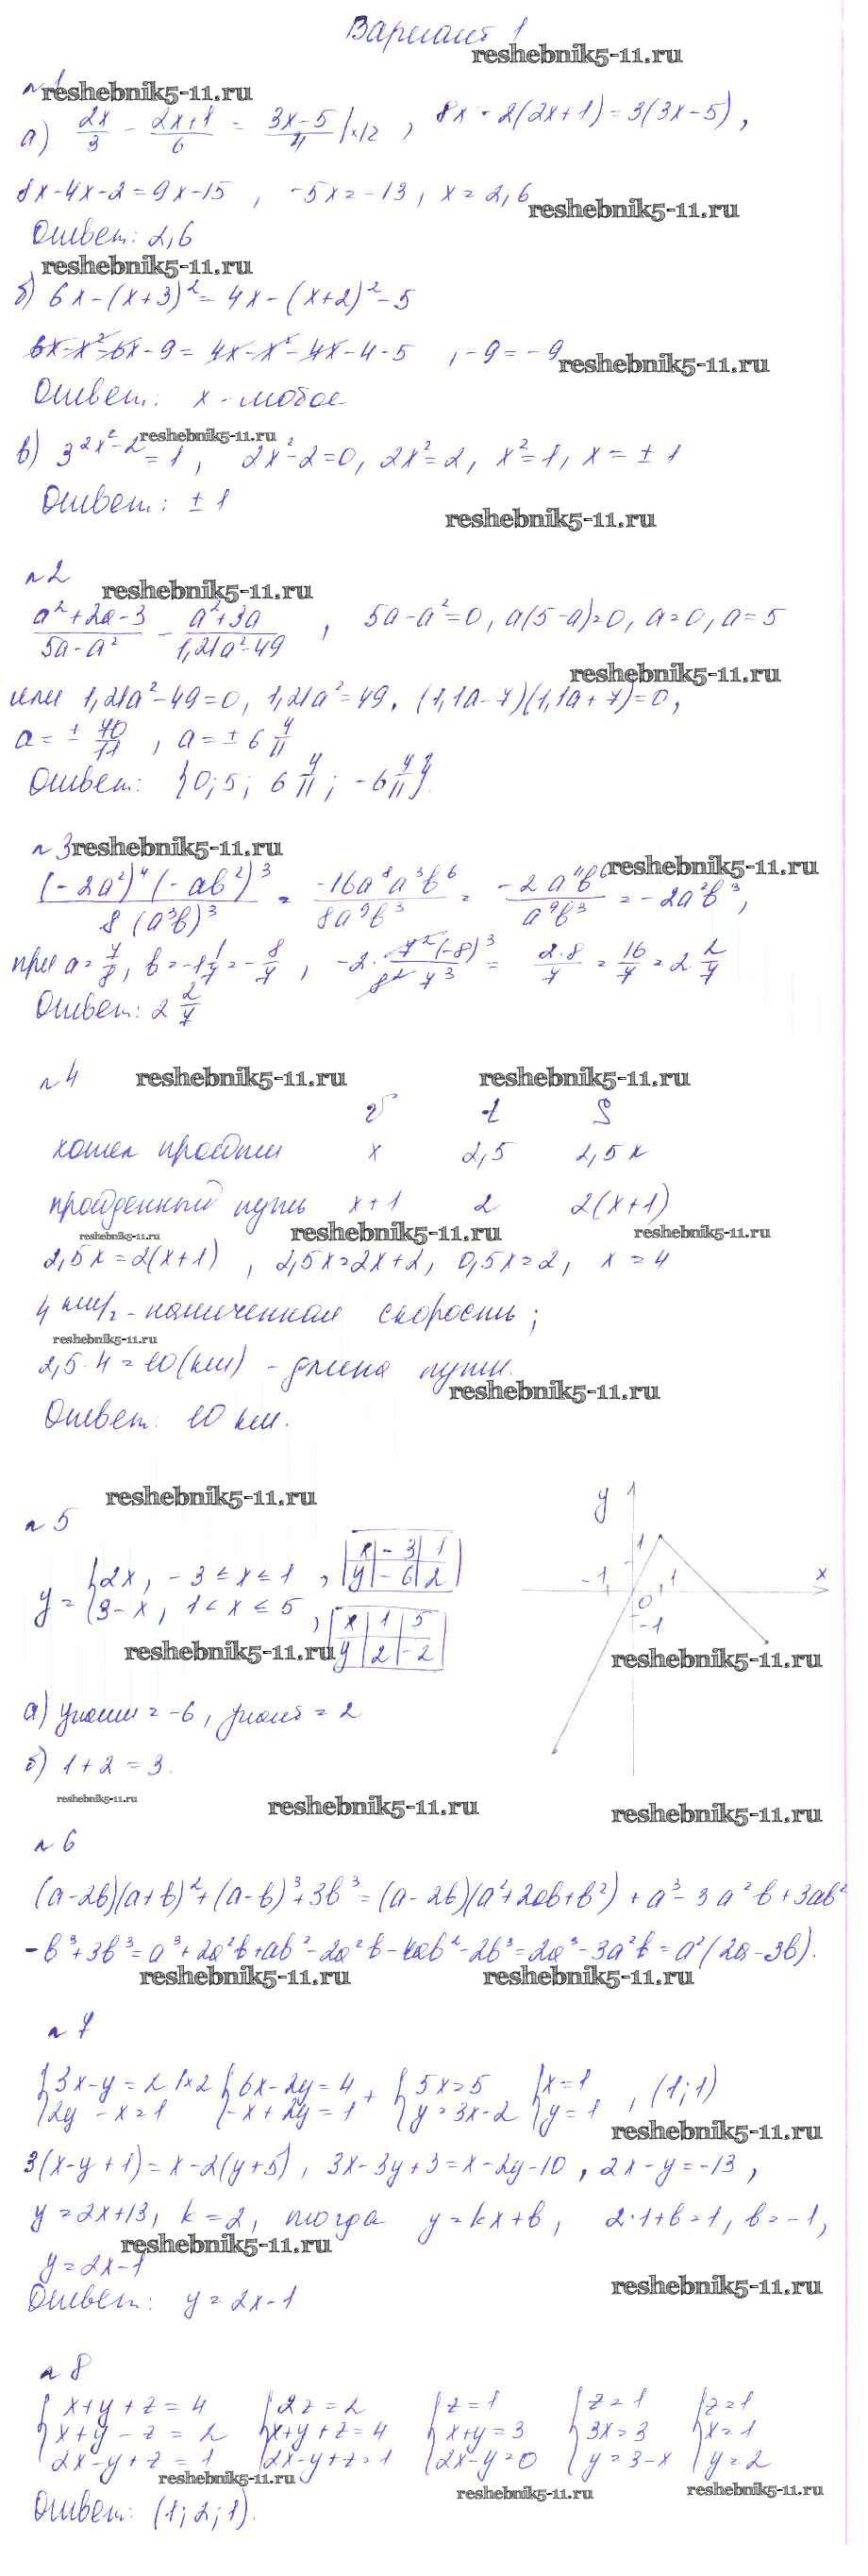 Вариант 1
reshebnik5-11.ru
№1
reshebnik5-11.ru
а) 2x/3 - (2x+1)/6 = (3x-5)/4 |×12 , 8x - 2(2x+1) = 3(3x-5) ,
8x-4x-2=9x-15 , -5x=-13, x=2,6
reshebnik5-11.ru
Ответ: 2,6
reshebnik5-11.ru
б) 6x-(x+3)²=4x-(x+2)²-5
6x-x²-6x-9=4x-x²-4x-4-5 , -9=-9
reshebnik5-11.ru
Ответ: x-любое
reshebnik5-11.ru
в) 3^(2x²-2) = 1, 2x²-2=0, 2x²=2, x²=1, x=±1
Ответ: ±1
reshebnik5-11.ru
№2
reshebnik5-11.ru
(a²+2a-3)/(5a-a²) - (a²+3a)/(1,21a²-49) , 5a-a²=0, a(5-a)=0, a=0, a=5
reshebnik5-11.ru
или 1,21a²-49=0, 1,21a²=49, (1,1a-7)(1,1a+7)=0,
a=± 70/11 , a=±6 4/11
Ответ: {0; 5; 6 4/11 ; -6 4/11}.
№3
reshebnik5-11.ru
reshebnik5-11.ru
(-2a²)⁴(-ab²)³/8(a³b)³ = -16a⁸a³b⁶/8a⁹b³ = -2a¹¹b⁶/a⁹b³ = -2a²b³,
при a=7/8, b=-1 1/7=-8/7 , -2·7²(-8)³/8²7³ = 2·8/7 = 16/7 = 2 2/7
Ответ: 2 2/7
№4
reshebnik5-11.ru
reshebnik5-11.ru
v t S
хотел пройти x 2,5 2,5x
пройденный путь x+1 2 2(x+1)
reshebnik5-11.ru
reshebnik5-11.ru
reshebnik5-11.ru
2,5x=2(x+1) , 2,5x=2x+2, 0,5x=2, x=4
4 км/ч - намеченная скорость;
reshebnik5-11.ru
2,5·4=10(км) - длина пути.
reshebnik5-11.ru
Ответ: 10 км.
reshebnik5-11.ru
№5
y={2x, -3≤x≤1 , x -3 1 y -6 2
{3-x, 1<x≤5 , x 1 5 y 2 -2
y
1
-1 0 1 x
-1
reshebnik5-11.ru
reshebnik5-11.ru
а) yнаим=-6, yнаиб=2
б) 1+2=3.
reshebnik5-11.ru
reshebnik5-11.ru
reshebnik5-11.ru
№6
(a-2b)(a+b)²+(a-b)³+3b³=(a-2b)(a²+2ab+b²)+a³-3a²b+3ab²
-b³+3b³=a³+2a²b+ab²-2a²b-4ab²-2b³=2a³-3a²b=a²(2a-3b).
reshebnik5-11.ru
reshebnik5-11.ru
№7
{3x-y=2 |×2 {6x-2y=4 + {5x=5 {x=1
{2y-x=1 {-x+2y=1 {y=3x-2 {y=1 , (1;1)
reshebnik5-11.ru
3(x-y+1)=x-2(y+5), 3x-3y+3=x-2y-10, 2x-y=-13,
y=2x+13, k=2, тогда y=kx+b, 2·1+b=1, b=-1,
reshebnik5-11.ru
y=2x-1
reshebnik5-11.ru
Ответ: y=2x-1
№8
{x+y+z=4 {2z=2 {z=1 {z=1 {z=1
{x+y-z=2 {x+y+z=4 {x+y=3 {3x=3 {x=1
{2x-y+z=1 {2x-y+z=1 {2x-y=0 {y=3-x {y=2
reshebnik5-11.ru
reshebnik5-11.ru
reshebnik5-11.ru
Ответ: (1; 2; 1).